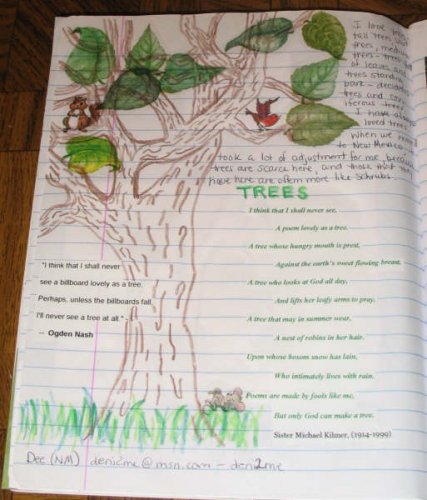 I love trees
tall trees,
trees, medium
trees - trees
of leaves and
trees standing
park - deciduous
trees and
iferous trees
I have always
loved trees
When we moved
to New Mexico
took a lot of adjustment for me, because
trees are scarce here, and those that
have here are often more like shrubs.
TREES
I think that I shall never see,
A poem lovely as a tree.
A tree whose hungry mouth is prest,
Against the earth's sweet flowing breast,
A tree who looks at God all day,
And lifts her leafy arms to pray.
A tree that may in summer wear,
A nest of robins in her hair.
Upon whose bosom snow has lain,
Who intimately lives with rain.
Poems are made by fools like me,
But only God can make a tree.
Sister Michael Kilmer, (1914-1999)
"I think that I shall never
see a billboard lovely as a tree.
Perhaps, unless the billboards fall,
I'll never see a tree at all." -
-- Ogden Nash
Dee (NM) deni2me@msn.com - deni2me